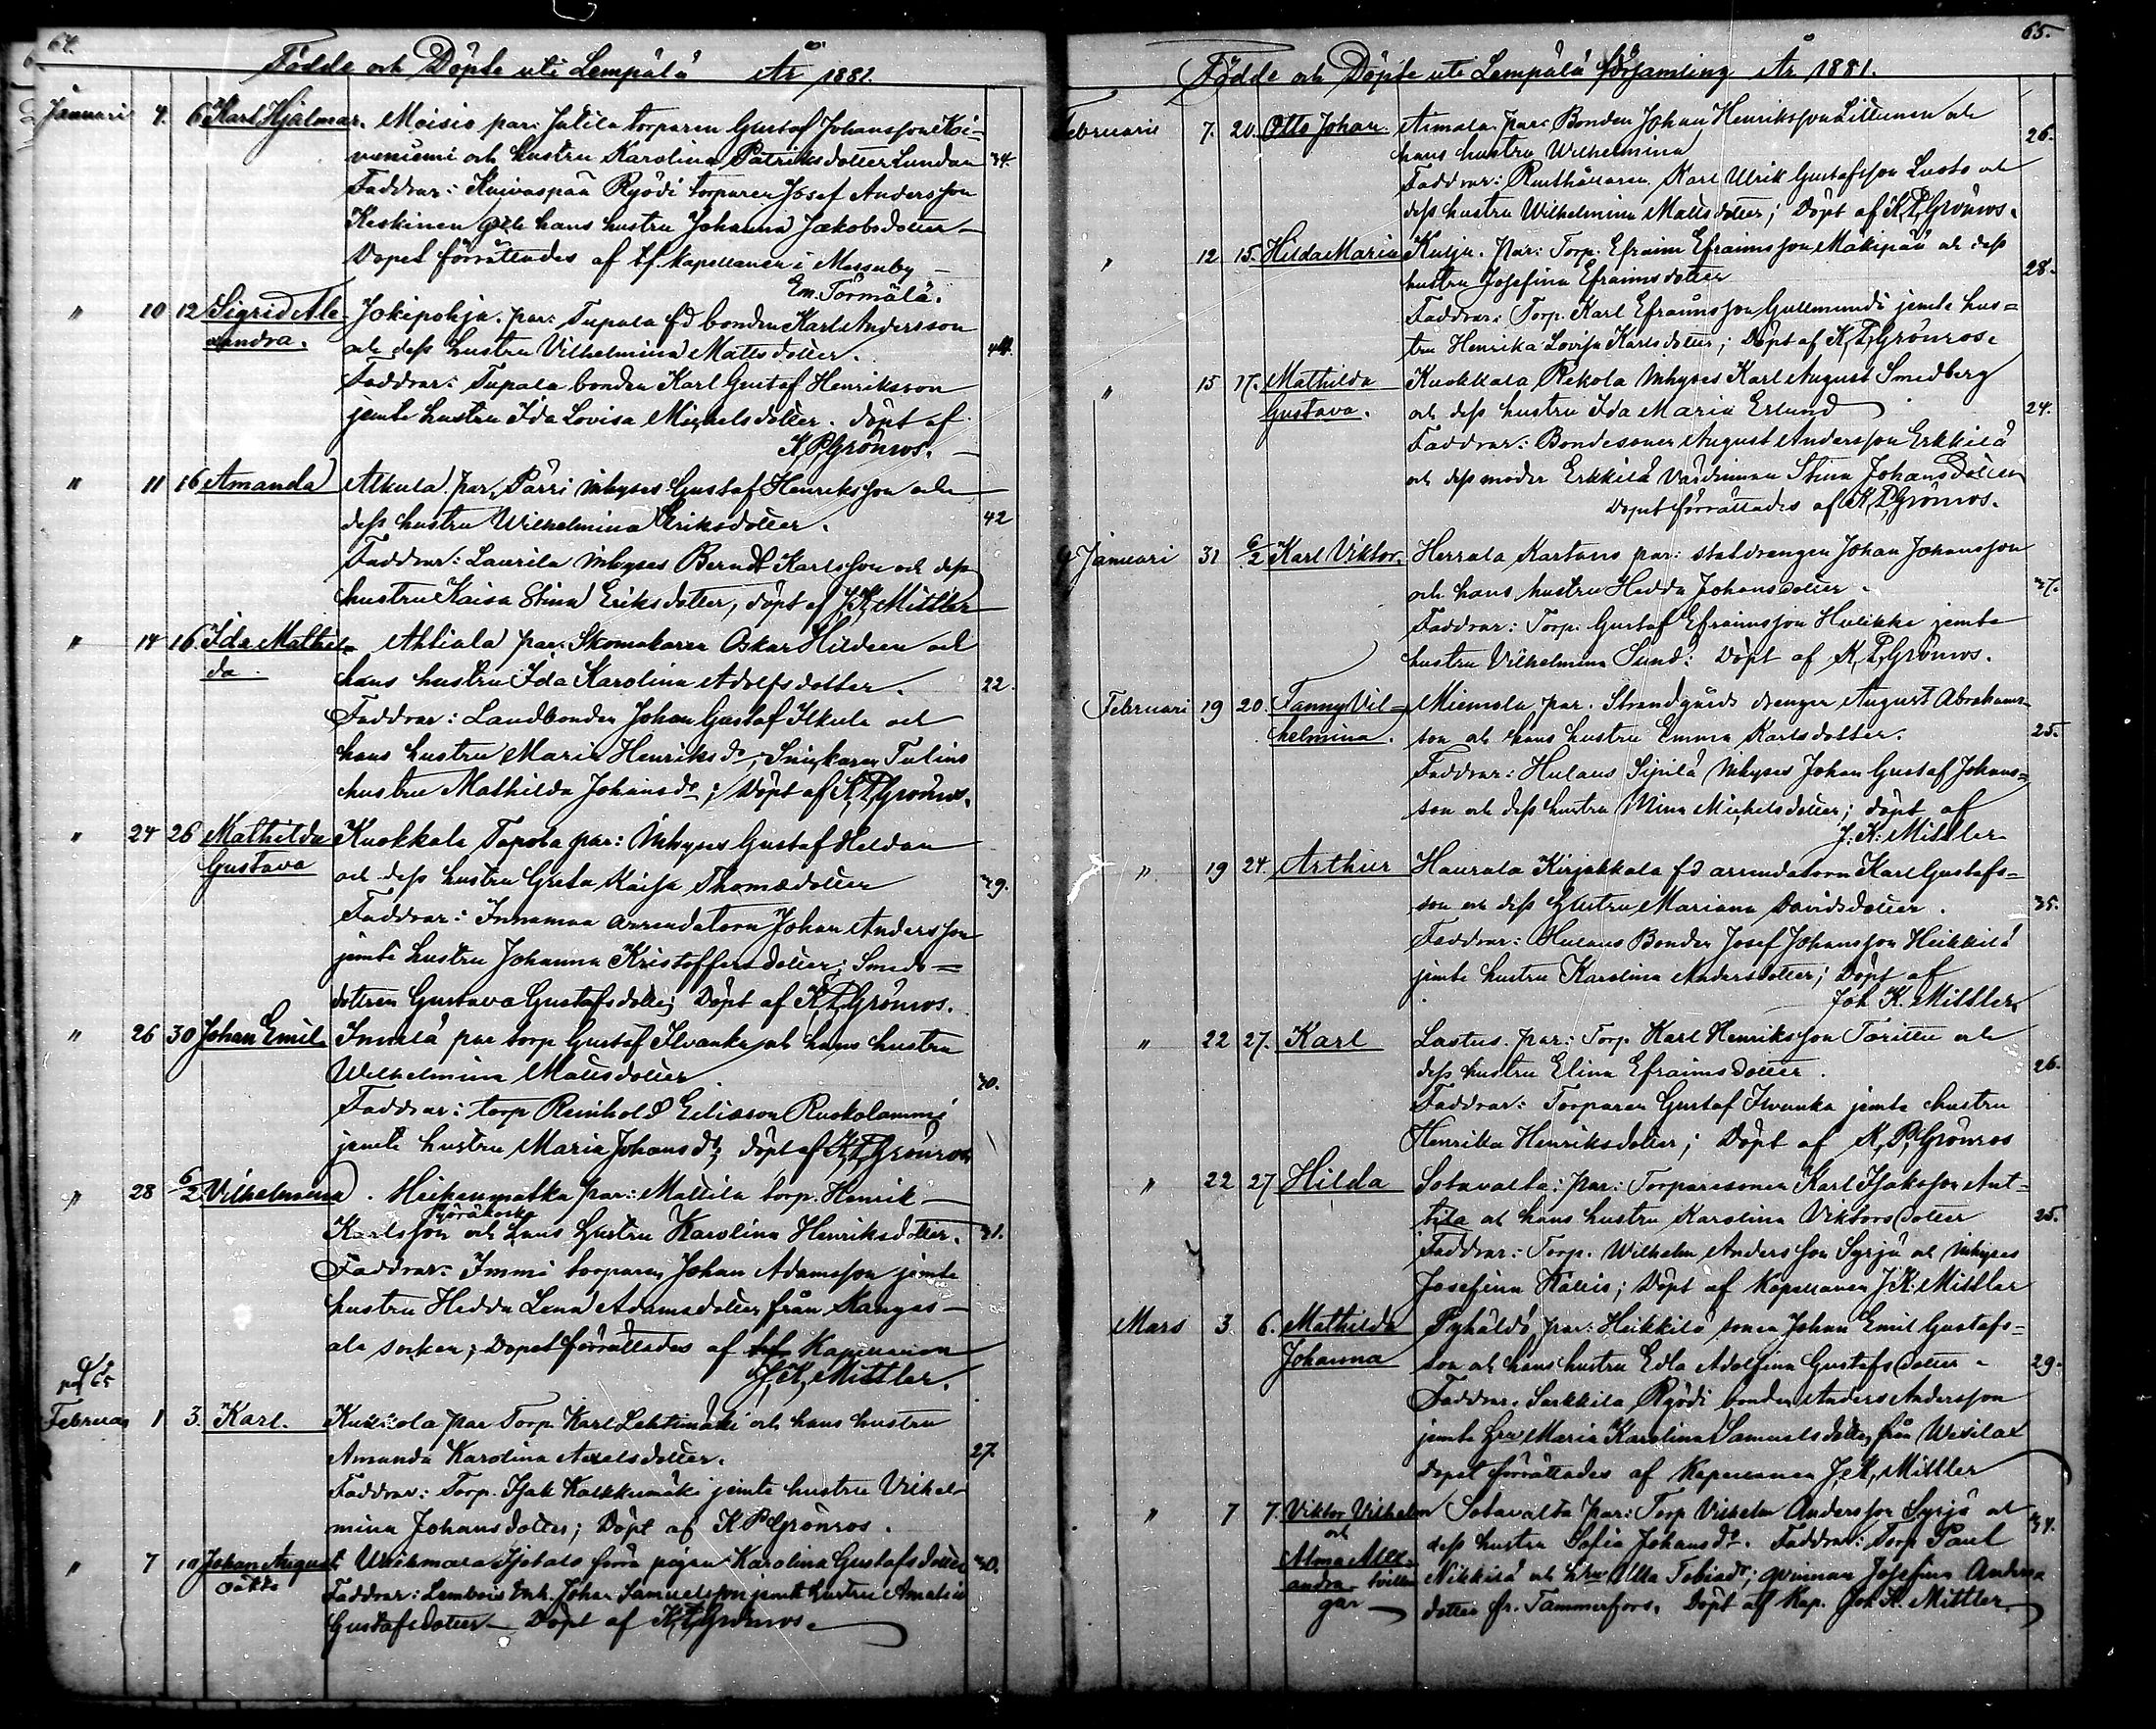 64.
Födde och Döpte uti Lempälä År 1881.
Januari 4. 6 Karl Hjalmar. Moisio par: Jutila torparen Gustaf Johansson Koi-
vuniemi och hustru Karolina Patriksdotter Lundan 34.
Faddrar: Kuivaspää Ryödi torparen Josef Andersson
Keskinen och hans hustru Johanna Jakobsdotter
Dopet förrättades af tf. kapellanen i Messuby
Em. Törmälä.
" 10 12 Sigrid Ale- Jokipohja. par: Tupala fd bonden Karl Andersson
xandra. och dess hustru Vilhelmina Mattsdotter. 44.
Faddrar: Tupala bonden Karl Gustaf Henriksson
jemte hustru Ida Lovisa Michelsdotter. döpt af
K. P. Grönros.
" 11 16 Amanda Alkula. par. Pärri Inhyses Gustaf Henriksson och
dess hustru Wilhelmina Eriksdotter. 42
Faddrar: Laurila Inhyses Berndt Karlsson och dess
hustru Kaisa Stina Eriksdotter, döpt af J. K. Mittler
" 14 16 Ida Mathil- Ahtiala par: Skomakaren Oskar Hildeen och
da. hans hustru Ida Karolina Adolfsdotter. 22.
Faddrar: Landbonden Johan Gustaf Ilkula och
hans hustru Maria Henriksdr, Snickaren Tulins
hustru Mathilda Johansdr; Döpt af K. P. Grönros.
" 24 26 Mathilda Kuokkala Tapola par: Inhyses Gustaf Heldan
Gustava och dess hustru Greta Kaisa Thomædotter 39.
Faddrar: Innamaa arrendatorn Johan Andersson
jemte hustru Johanna Kristoffersdotter; Smeds=
dottren Gustava Gustafsdotter; Döpt af K. P. Grönros.
" 26 30 Johan Emil Innilä par torp Gustaf Ilvanka och hans hustru
Wilhelmina Mattsdotter. 30.
Faddrar: torp Reinhold Eliasson Ruokolammi
jemte hustru Maria Johansdr; döpt af K. P. Grönros
" 28 6/2 Vilhelmina. par: Mattila torp. Henrik
Karlsson och hans hustru Karolina Henriksdotter. 31.
Faddrar: Immi torparen Johan Adamsson jemte
hustru Hedda Lena Adamsdotter från Kangas-
ala socken; Dopet förrättades af Kapellanen
J. K. Mittler.
Februari 1 3. Karl. Kukkola par Torp. Karl Lehtimäki och hans hustru
Amanda Karolina Axelsdotter. 27.
Faddrar: Torp. Isak Kalkkumäki jemte hustru Vilhel-
mina Johansdotter; Döpt af K P Grönros.
" 7 10 Johan August Karolina Gustafsdotter 30.
oäkta Faddrar: Lembois Inh. Johan Samuelsson jemte hustru Amalia
Gustafsdotter — Döpt af K. P. Grönros.
65.
Födde och Döpte uti Lempälä församling År 1881.
Februari 7. 20. Otto Johan. Aimala. par: Bonden Johan Henriksson Littunen och 26.
hans hustru Wilhelmina
Faddrar: Rusthållaren Karl Ulrik Gustafsson Luoto och
dess hustru Wilhelmina Mattsdotter; Döpt af K. P. Grönros.
" 12 15. Hilda Maria Kulju. par: Torp. Efraim Efraimsson Mäkipää och dess 28.
hustru Josefina Efraimsdotter
Faddrar: Torp. Karl Efraimsson Gullmundi jemte hus=
tru Henrika Lovisa Karlsdotter; Döpt af K. P. Grönros.
" 15 17. Mathilda Kuokkala Rekola Inhyses Karl August Smedberg
Gustava. och dess hustru Ida Maria Erlund 24.
Faddrar: Bondesonen August Andersson Erkkilä
och dess moder Erkkilä Värdinnan Stina Johansdotter
Dopet förrättades af K. P. Grönros.
Januari 31 6/2 Karl Viktor. Herrala Kartano par: statdrengen Johan Johansson
och hans hustru Hedda Johansdotter. 37.
Faddrar: Torp. Gustaf Efraimsson Hulikka jemte
hustru Vilhelmina Sund: Döpt af K. P. Grönros.
Februari 19 20. Fanny Vil= Miemola par. Strandgårds drengen August Abrahams-
helmina. son och hans hustru Emma Karlsdotter. 25.
Faddrar: Hulaus Sipilä Inhyses Johan Gustaf Johans=
son och dess hustru Mina Michelsdotter; döpt af
J. K. Mittler
" 19 24. Arthur Haurala Kirjakkala fd arrendatorn Karl Gustafs=
son och dess hustru Mariana Davidsdotter. 35.
Faddrar: Hulaus Bonden Josef Johansson Heikkilä
jemte hustru Karolina Andersdotter; Döpt af
Joh. K. Mittler.
" 22 27. Karl Lastus. par: Torp. Karl Henriksson Tarittu och
dess hustru Elina Efraimsdotter. 26.
Faddrar: Torparen Gustaf Ilvanka jemte hustru
Henrika Henriksdotter; Döpt af K. P. Grönros
" 22 27 Hilda Sotavalta: par: Torparesonen Karl Isaksson Ant=
tila och hans hustru Karolina Viktorsdotter 25.
Faddrar: Torp. Wilhelm Andersson Syrjä och Inhyses
Josefina Kallis; Döpt af Kapellanen J. K. Mittler
Mars 3 6. Mathilda Pyhältö par: Heikkilä sonen Johan Emil Gustafs=
Johanna son och hans hustru Edla Adolfina Gustafsdotter. 29.
Faddrar. Sarkkila Ryödi bonden Anders Andersson
jemte hru Maria Karolina Samuelsdotter från Wesilax
Dopet förrättades af Kapellanen J. K. Mittler
" 7 7. Viktor Vilhelm Sotavalta par: Torp Vilhelm Andersson Syrjä och 34.
och dess hustru Sofia Johansdr. Faddrar: Torp Paul
Alma Alex= Nikkilä och hru Ulla Tobiasdr; qvinnan Josefina Anders
andra tvillin dotter fr. Tammerfors. Döpt af Kap. Joh. K. Mittler.
gar